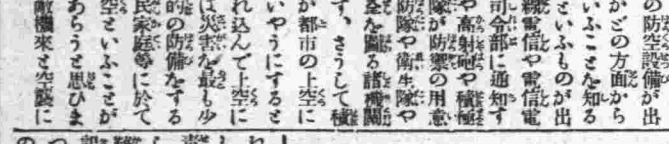 の防空設備が出
かどの方面から
いふことを知る
といふものが出
線電信や電信電
司令部に通知す
や高射砲や積極
隊が防禦の用意
防隊や衞生隊や
全を圖る諸機關
す、さうして積
が都市の上空に
いやうにすると
れ込んで上空に
は災害を最も少
的の防備をする
民家庭等に於て
空といふことが
あらうと思ひま
敵機來と空襲に